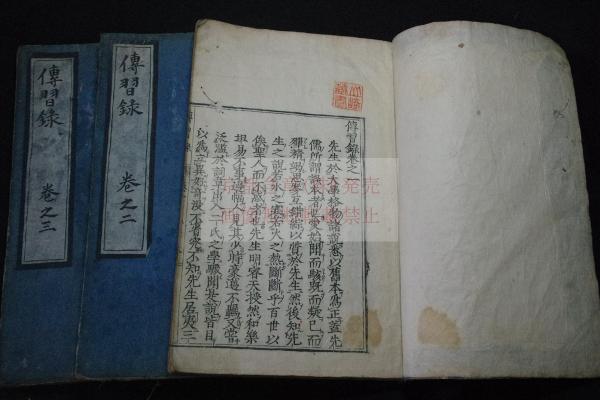 傳習錄卷之一
先生於大學格物諸說悉以舊本爲正蓋先
儒所謂誤本者也愛始聞而駭既而疑已而
殫精竭思參互錯綜以質於先生然後知先
生之說若水之寒若火之熱斷斷乎百世以
俟聖人而不惑者也先生明睿天授然和樂
坦易不事邊幅人見其少時豪邁不羈又嘗
泛濫於詞章出入二氏之學驟聞是說皆目
以爲立異好奇漫不省究不知先生居夷三
傳習錄 卷之二
傳習錄 卷之三